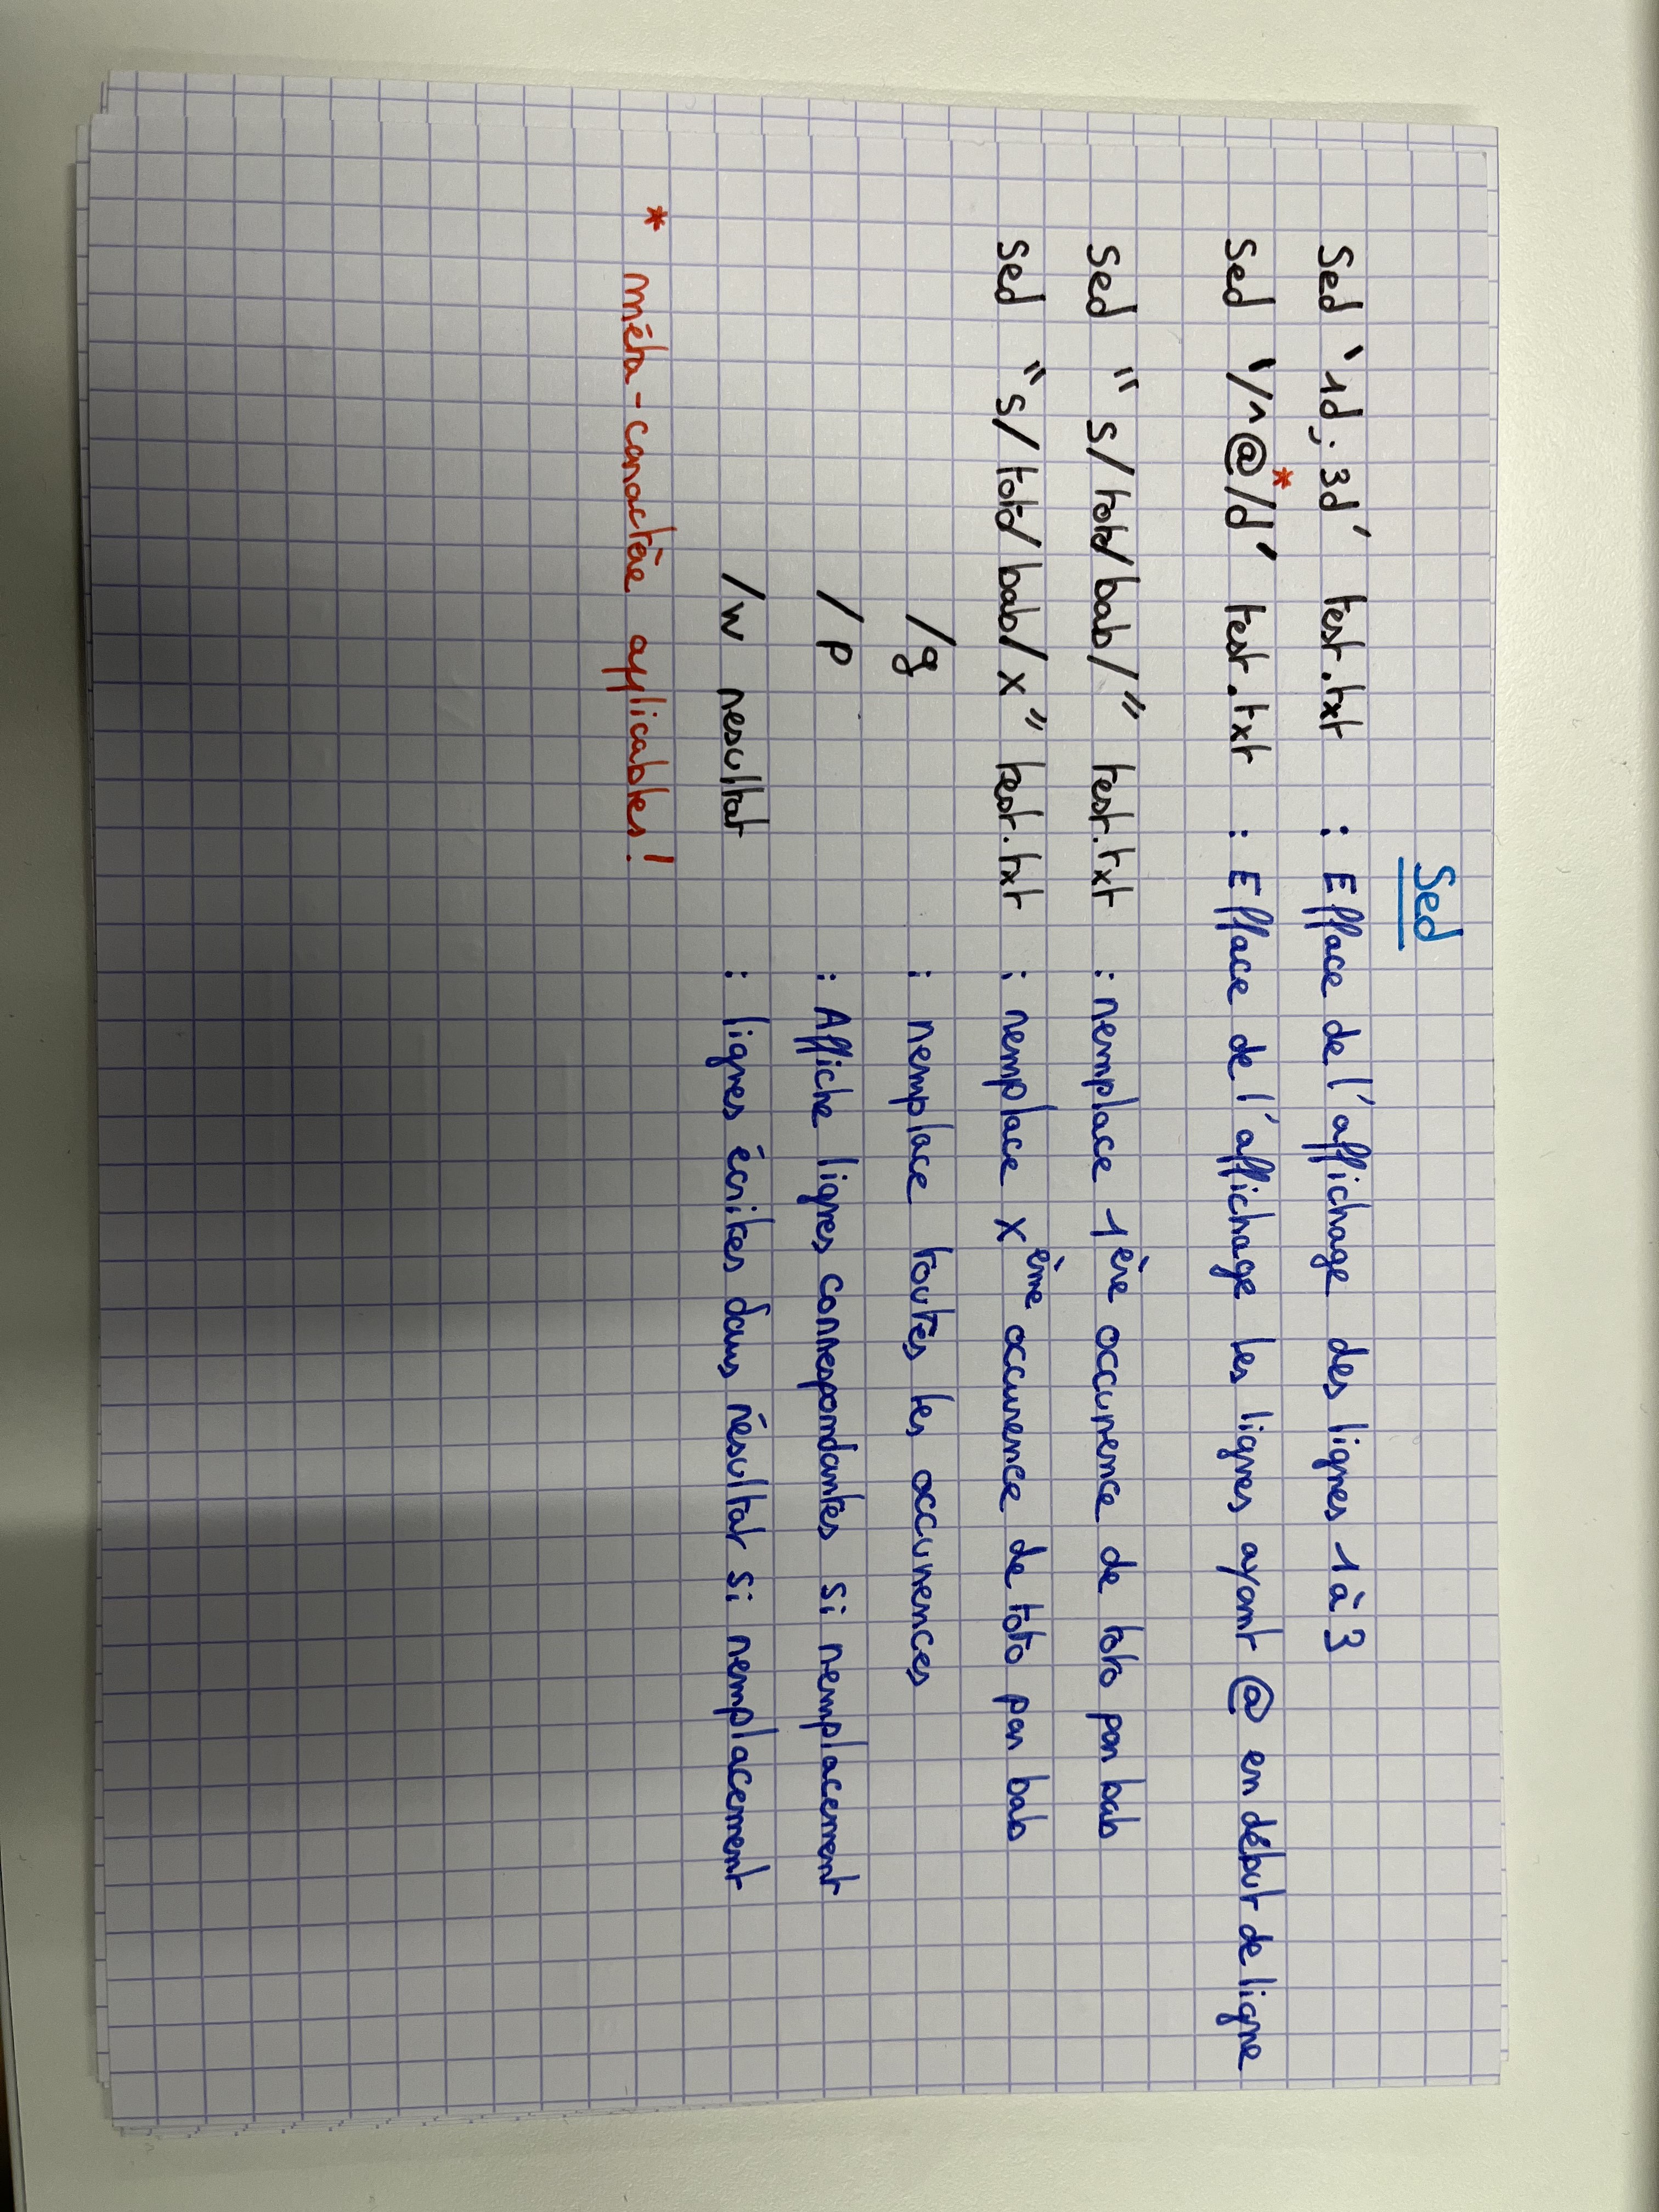 Sed
Sed '1d; 3d' test.txt : Efface de l'affichage des lignes 1 à 3
Sed '/^@*/d' test.txt : Efface de l'affichage les lignes ayant @ en début de ligne
Sed "s/toto/bab/" test.txt : remplace 1ère occurence de toto par bab
Sed "s/toto/bab/x" test.txt : remplace xème occurence de toto par bab
/g : remplace toutes les occurences
/p : Affiche lignes correspondantes si remplacement
/w resultat : lignes écrites dans résultat si remplacement
* méta-caractère applicables!